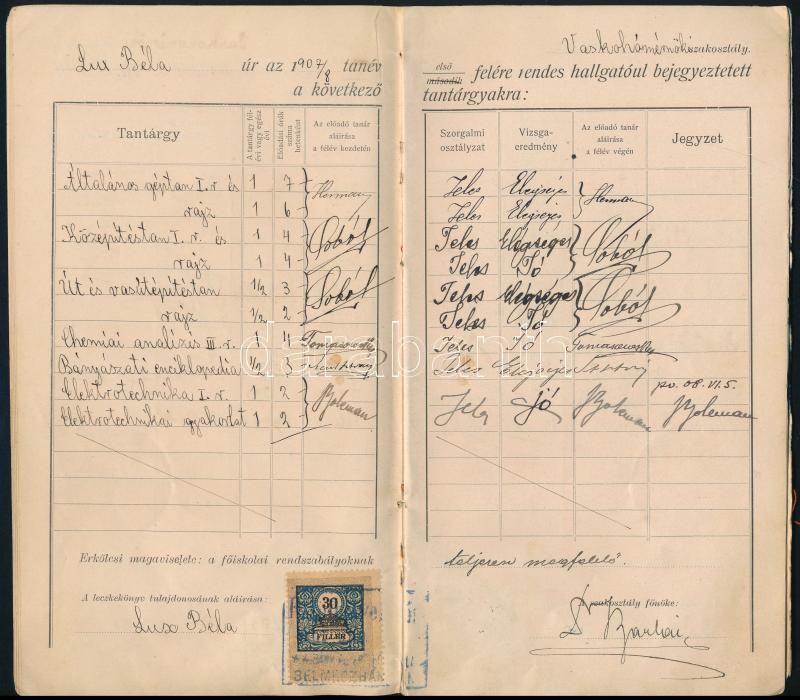 Lux Béla úr az 1907/8 tanév
a következő
Tantárgy
A tantárgy félévi vagy egész évi
Előadási órák száma hetenként
Az előadó tanár aláirása a félév kezdetén
Általános géptan I. r és 1 7 Herrmann
rajz 1 6
Középítéstan I. r. és 1 4 Sobó
rajz 1 4
Út és vasútépítéstan 1/2 3 Sobó
rajz 1/2 2
Chemiai analízis III. r. 1 4 Tomasovszky
Bányászati enciklopedia 1/2 3
Elektrotechnika I. r. 1 2 Boleman
Elektrotechnikai gyakorlat 1 2
Erkölcsi magaviselete: a főiskolai rendszabályoknak
A leczkekönyv tulajdonosának aláirása:
Lux Béla
30
FILLÉR
SELMECZBÁN
Vaskohómérnöki szakosztály.
első
második felére rendes hallgatóul bejegyeztetett
tantárgyakra:
Szorgalmi osztályzat
Vizsga-eredmény
Az előadó tanár aláirása a félév végén
Jegyzet
Jeles Elégséges Herrmann
Jeles Elégséges
Jeles Elégséges Sobó
Jeles Jó
Jeles Elégséges Sobó
Jeles Jó
Jeles Jó Tomasovszky
Jeles Elégséges
po. 08. VI. 5.
Jeles Jó Boleman Boleman
teljesen megfelelő.
A szakosztály főnöke:
Dr Barlai
darabanth